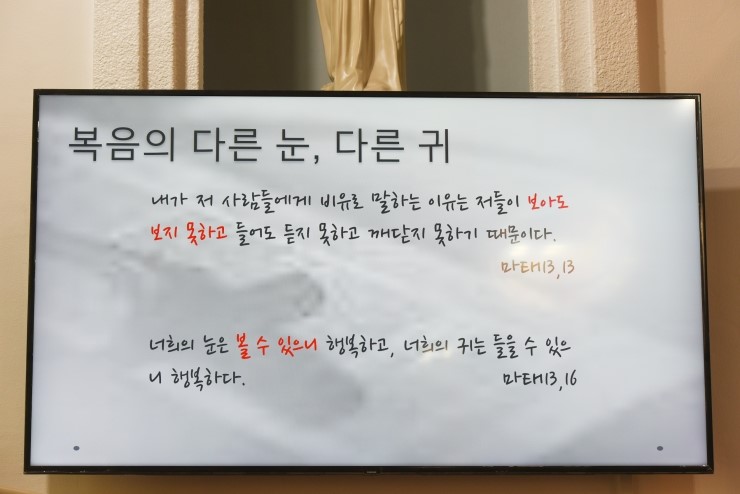 복음의 다른 눈, 다른 귀
내가 저 사람들에게 비유로 말하는 이유는 저들이 보아도
보지 못하고 들어도 듣지 못하고 깨닫지 못하기 때문이다.
마태13,13
너희의 눈은 볼 수 있으니 행복하고, 너희의 귀는 들을 수 있으
니 행복하다.
마태13,16